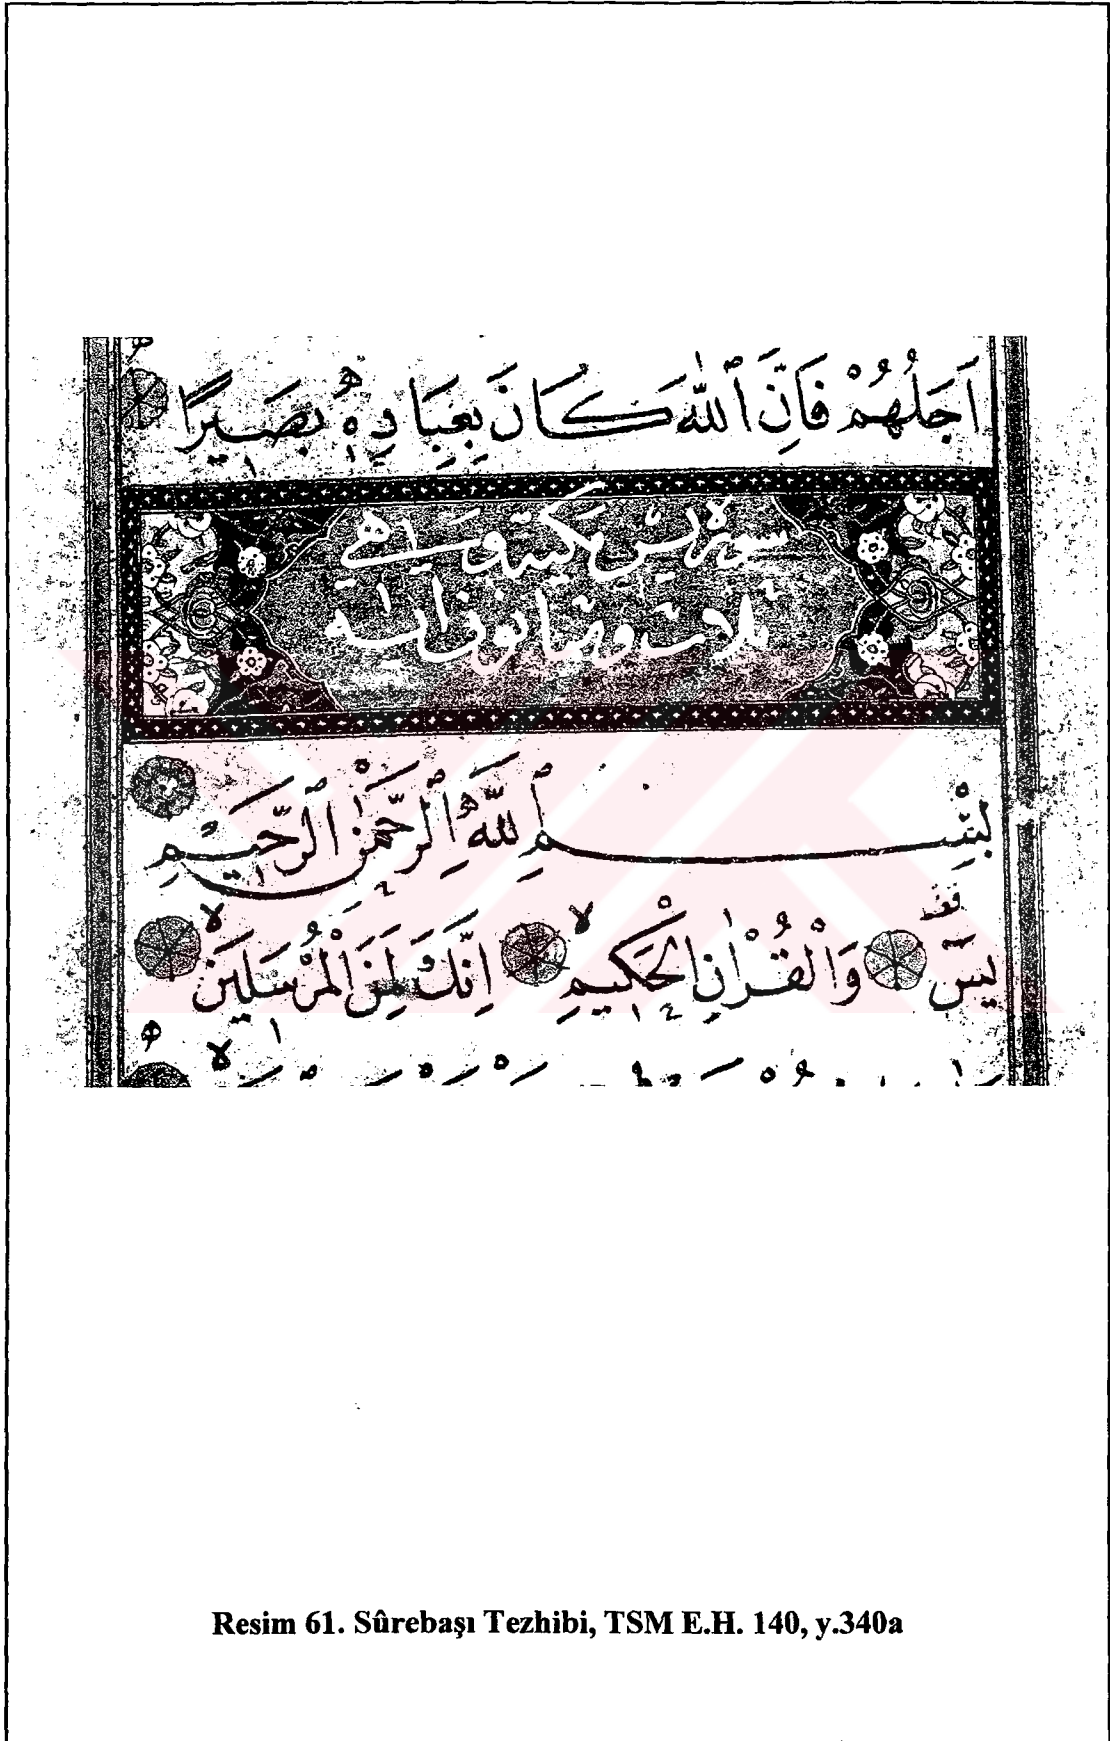 اَجَلُهُمْ فَاِنَّ ٱللّٰهَ كَانَ بِعِبَادِهٖ بَصٖيرًا
سورة يس مكية وهي
ثلاث وثمانون اية
بِسْمِ ٱللّٰهِ ٱلرَّحْمٰنِ ٱلرَّحٖيمِ
فقف
يٰسٓ وَالْقُرْاٰنِ الْحَكٖيمِ لا اِنَّكَ لَمِنَ الْمُرْسَلٖينَ لا
Resim 61. Sûrebaşı Tezhibi, TSM E.H. 140, y.340a